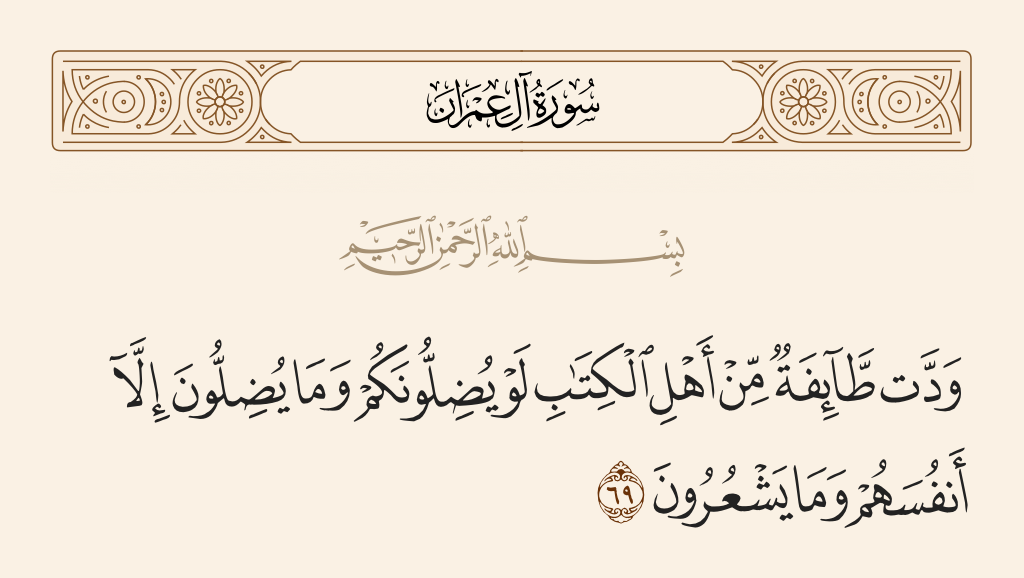 سُورَةُ آلِ عِمْرَان
بِسْمِ ٱللَّهِ ٱلرَّحْمَٰنِ ٱلرَّحِيمِ
وَدَّت طَّآئِفَةٌ مِّنْ أَهْلِ ٱلْكِتَٰبِ لَوْ يُضِلُّونَكُمْ وَمَا يُضِلُّونَ إِلَّآ
أَنفُسَهُمْ وَمَا يَشْعُرُونَ ٦٩